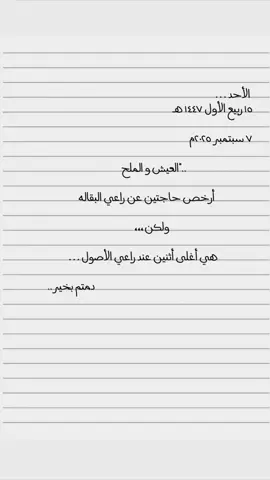 الأحد ...
١٥ ربيع الأول ١٤٤٧ هـ
٧ سبتمبر ٢٠٢٥م
.."العيش و الملح
أرخص حاجتين عن راعي البقاله
ولكن ،،،
هي أغلى أثنين عند راعي الأصول ...
دمتم بخير ..